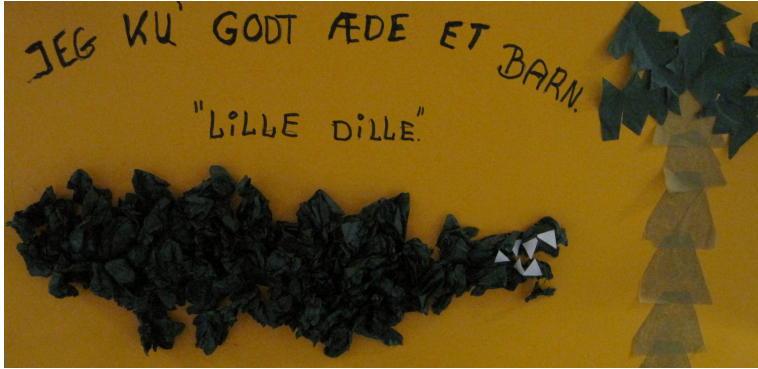 JEG KU' GODT ÆDE ET BARN.
"LiLLE DiLLE."